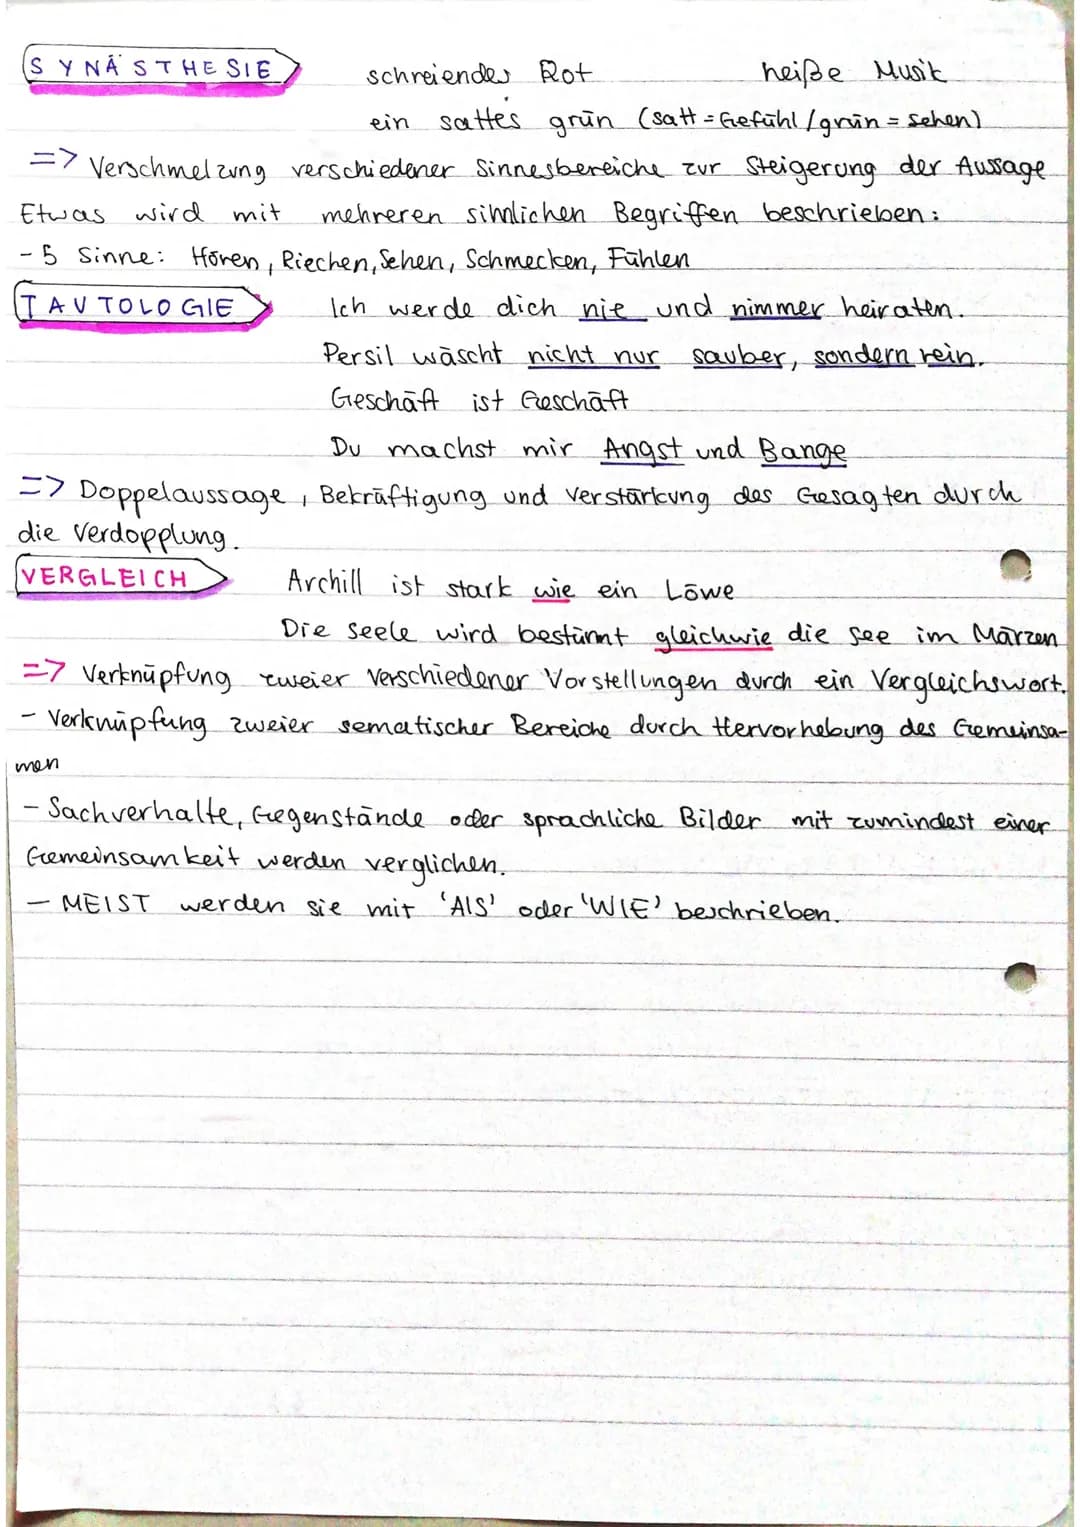 SYNÄSTHESIE schreiendes Rot heiße Musik
ein sattes grün (satt = Gefühl / grün = sehen)
=> Verschmelzung verschiedener Sinnesbereiche zur Steigerung der Aussage
Etwas wird mit mehreren sinnlichen Begriffen beschrieben:
- 5 Sinne: Hören, Riechen, Sehen, Schmecken, Fühlen
TAUTOLOGIE Ich werde dich nie und nimmer heiraten.
Persil wäscht nicht nur sauber, sondern rein.
Geschäft ist Geschäft
Du machst mir Angst und Bange
=> Doppelaussage, Bekräftigung und Verstärkung des Gesagten durch
die Verdopplung.
VERGLEICH Archill ist stark wie ein Löwe
Die Seele wird bestürmt gleichwie die See im Märzen
=> Verknüpfung zweier verschiedener Vorstellungen durch ein Vergleichswort.
- Verknüpfung zweier sematischer Bereiche durch Hervorhebung des Gemeinsa-
men
- Sachverhalte, Gegenstände oder sprachliche Bilder mit zumindest einer
Gemeinsamkeit werden verglichen.
- MEIST werden sie mit 'AlS' oder 'WIE' beschrieben.